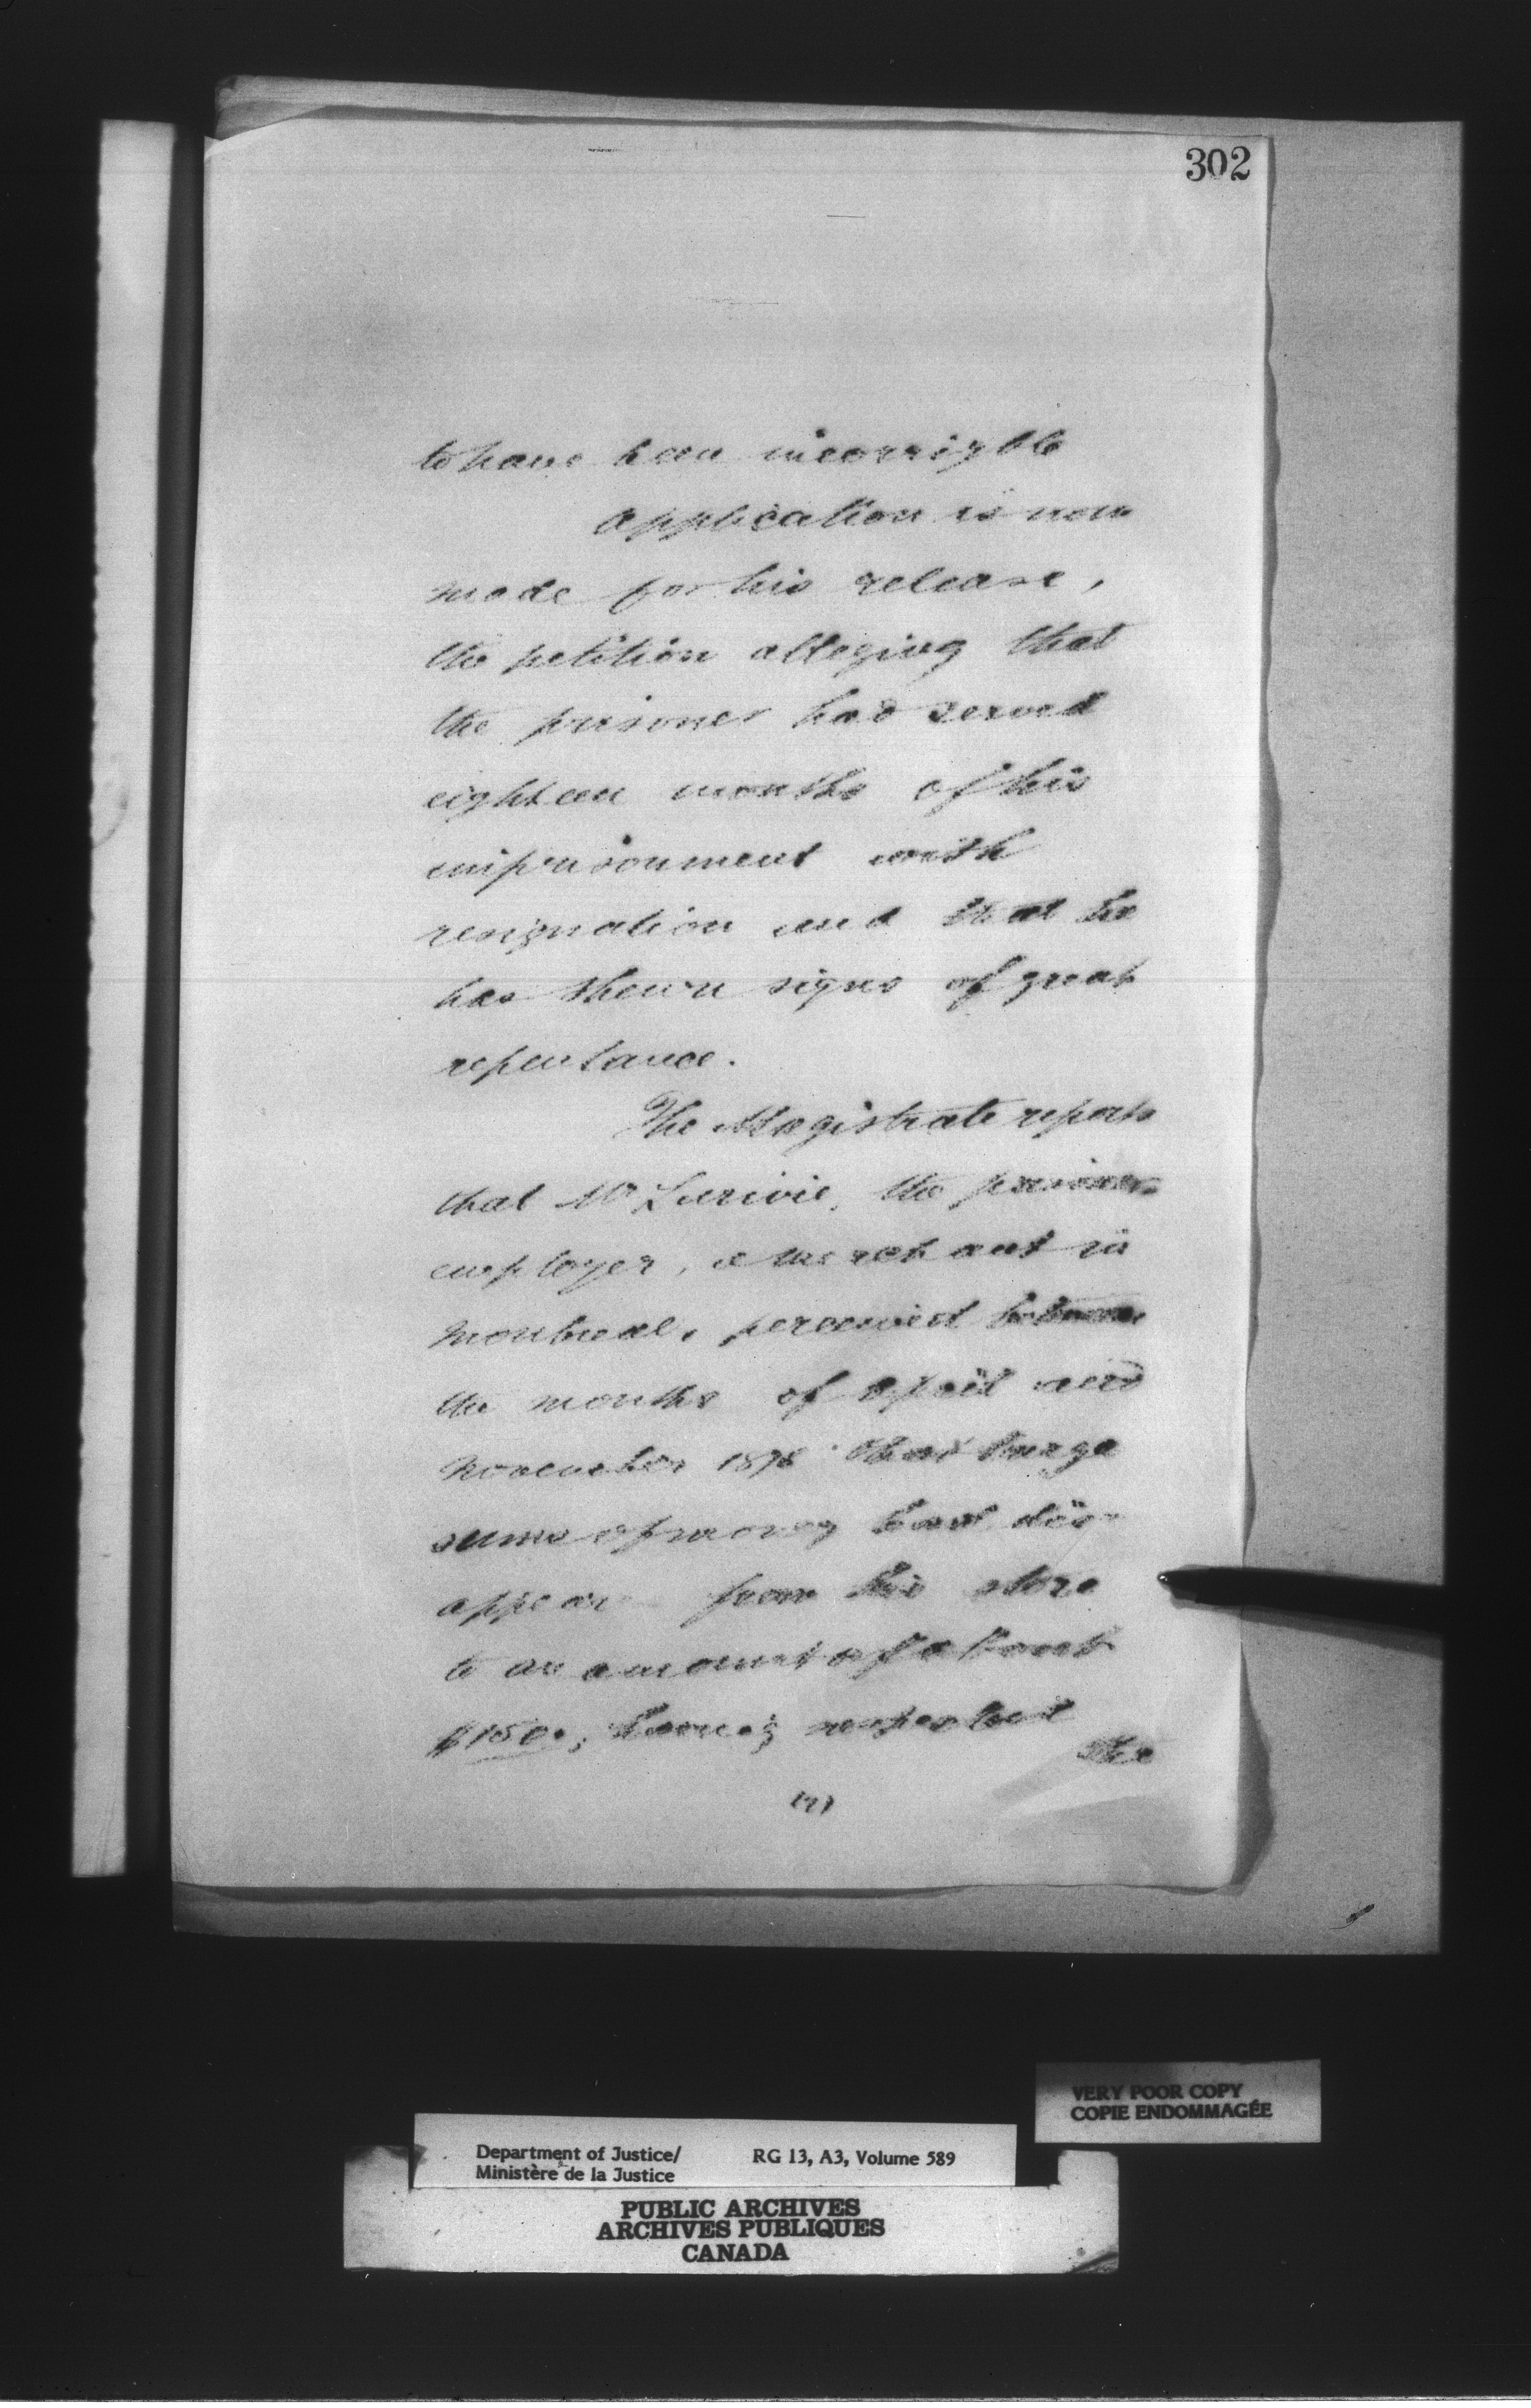 302
to have been incorrigble
Application is now
made for his release,
the petition alleging that
the prisoner had served
eighteen months of his
imprisonment with
resignation and that he
has shewn signs of great
repentance.
The Magistrate reports
that Mr Larivie, the prisoners
employer, a merchant in
Montreal, perceived between
the months of April and
November 1878 that large
sums of money had dis-
appear from his store
to an amount of about
$150.; having suspected
the
VERY POOR COPY
COPIE ENDOMMAGÉE
Department of Justice/ RG 13, A3, Volume 589
Ministère de la Justice
PUBLIC ARCHIVES
ARCHIVES PUBLIQUES
CANADA